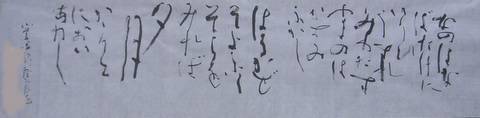 なのはな
ばたけに
いりひ
うすれ
みわたす
やまのは
かすみ
ふかし
はるかぜ
そよふく
そらを
みれば
夕
月
かかりて
におい
あわし